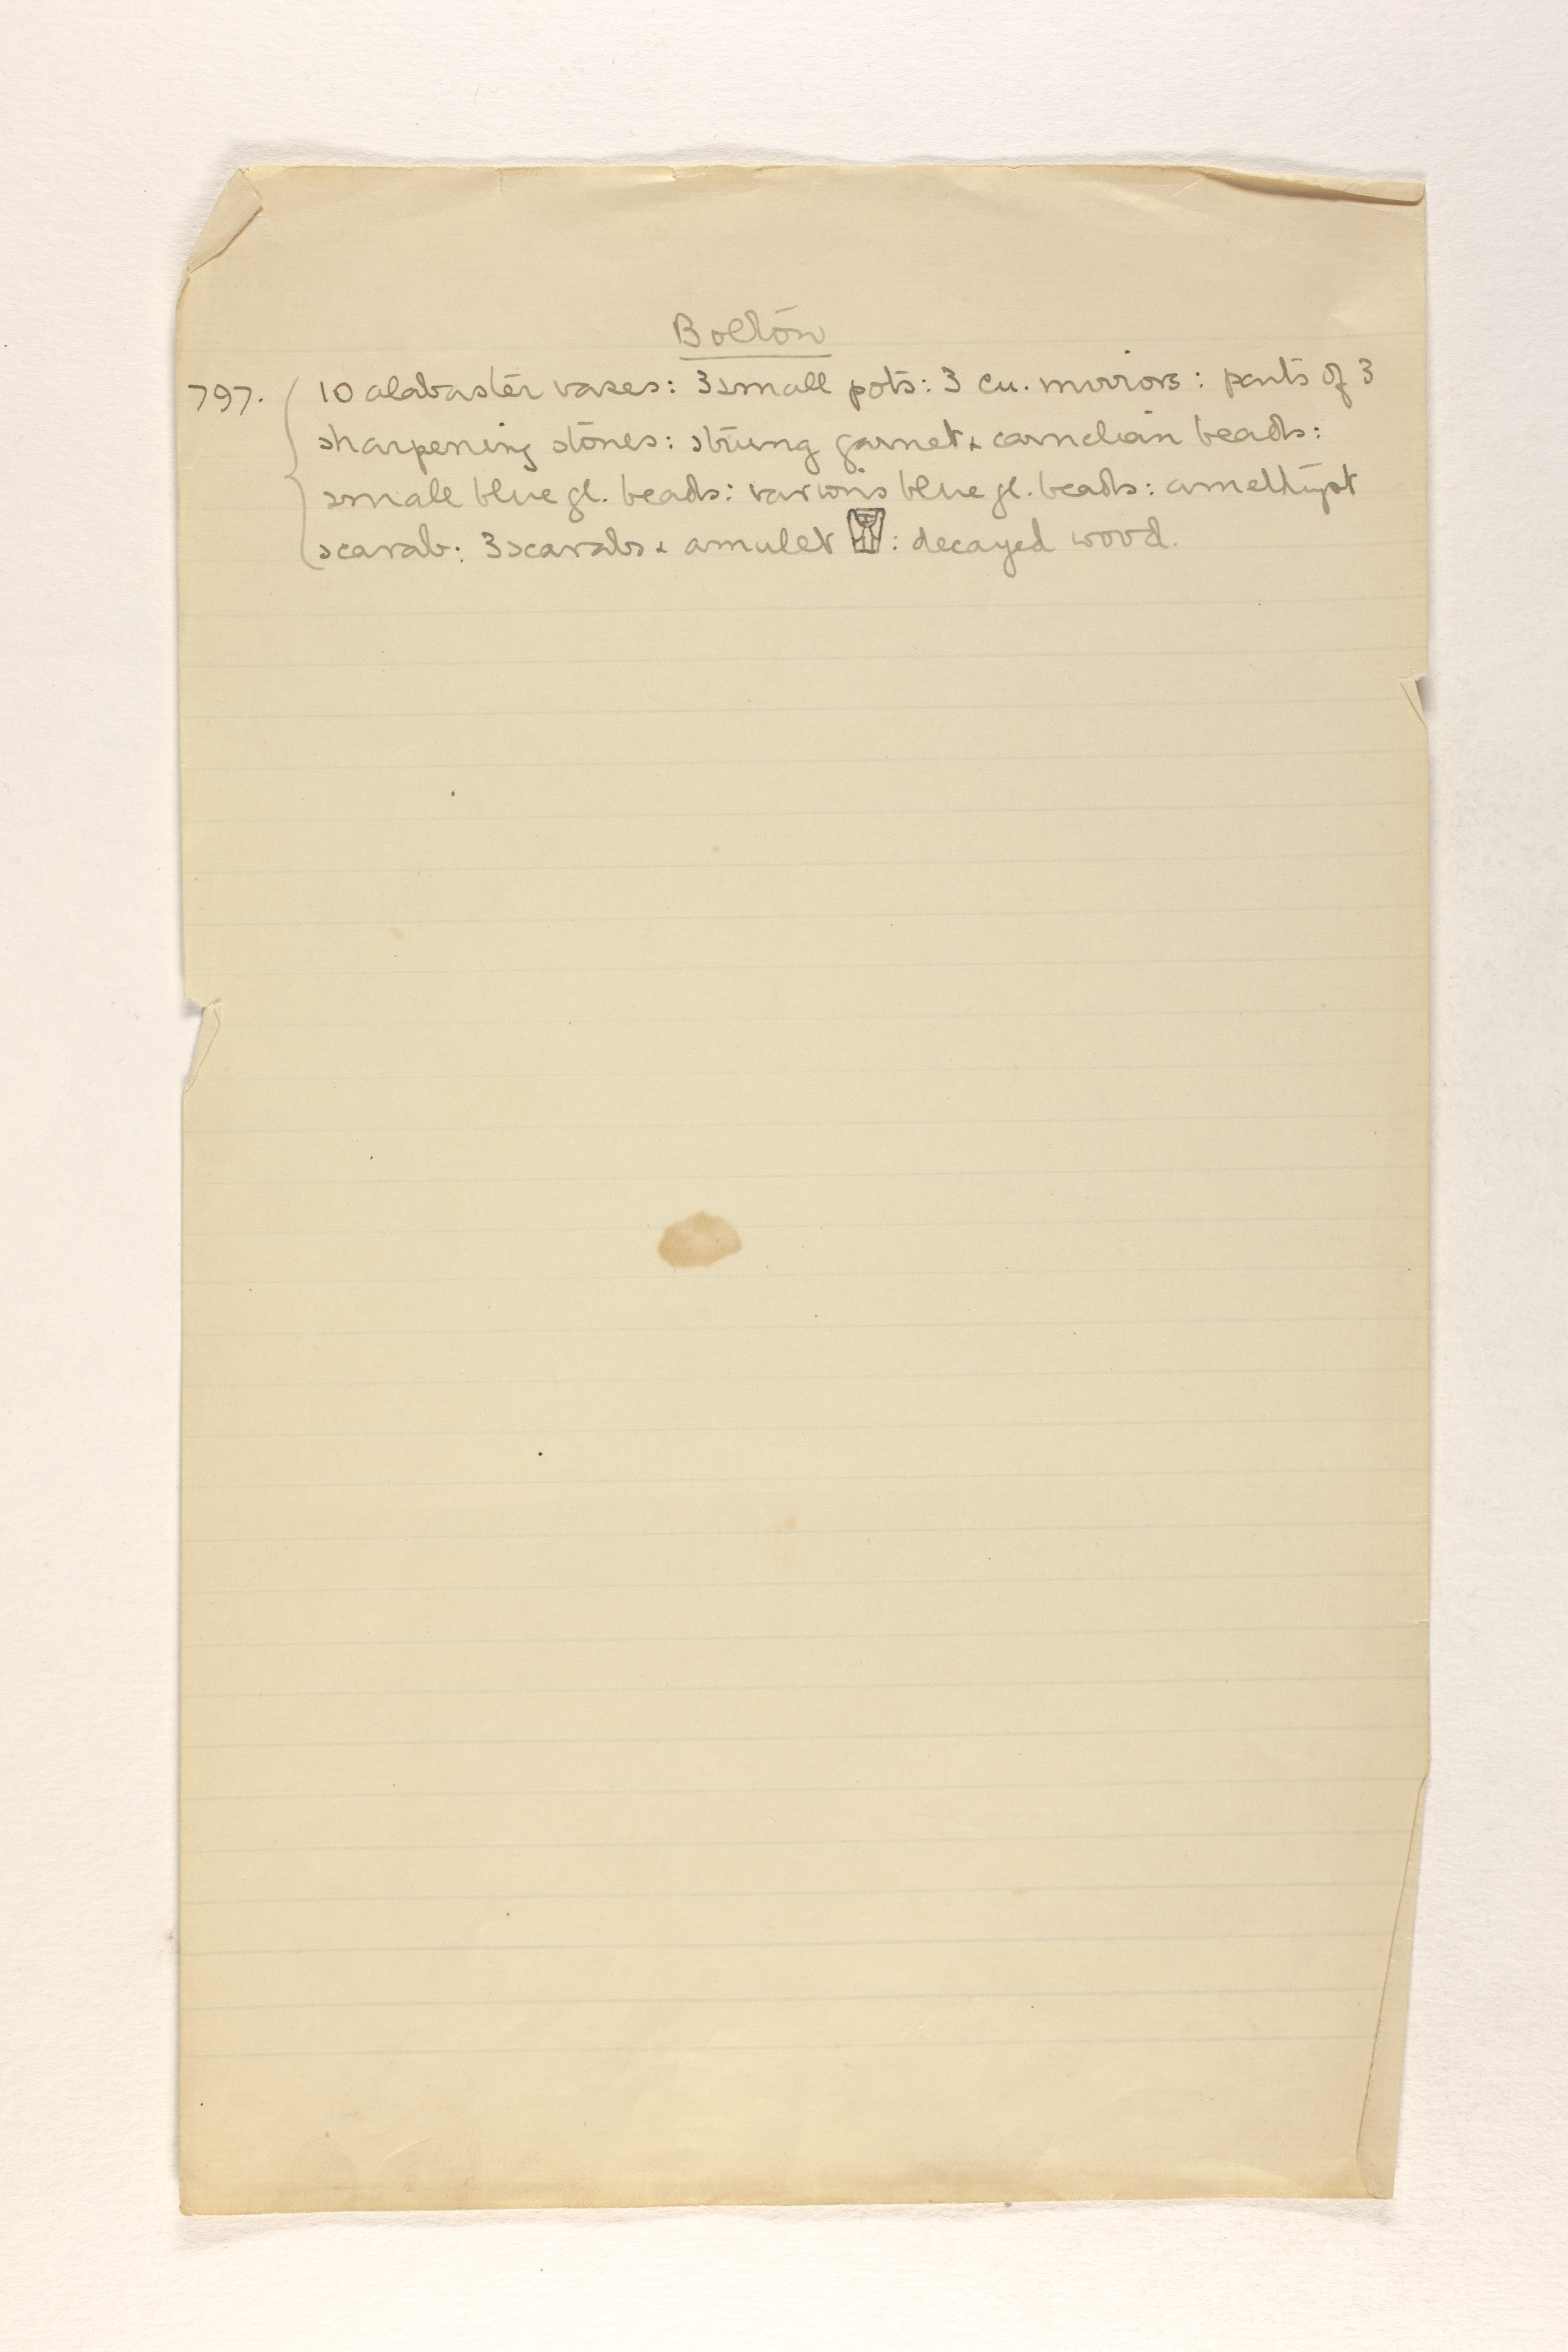 Bolton
797. 10 alabaster vases: 3 small pots: 3 cu. mirrors: parts of 3
sharpening stones: strung garnet & carnelian beads:
small blue gl. beads: various blue gl. beads: amethyst
scarab: 3 scarabs & amulet : decayed wood.